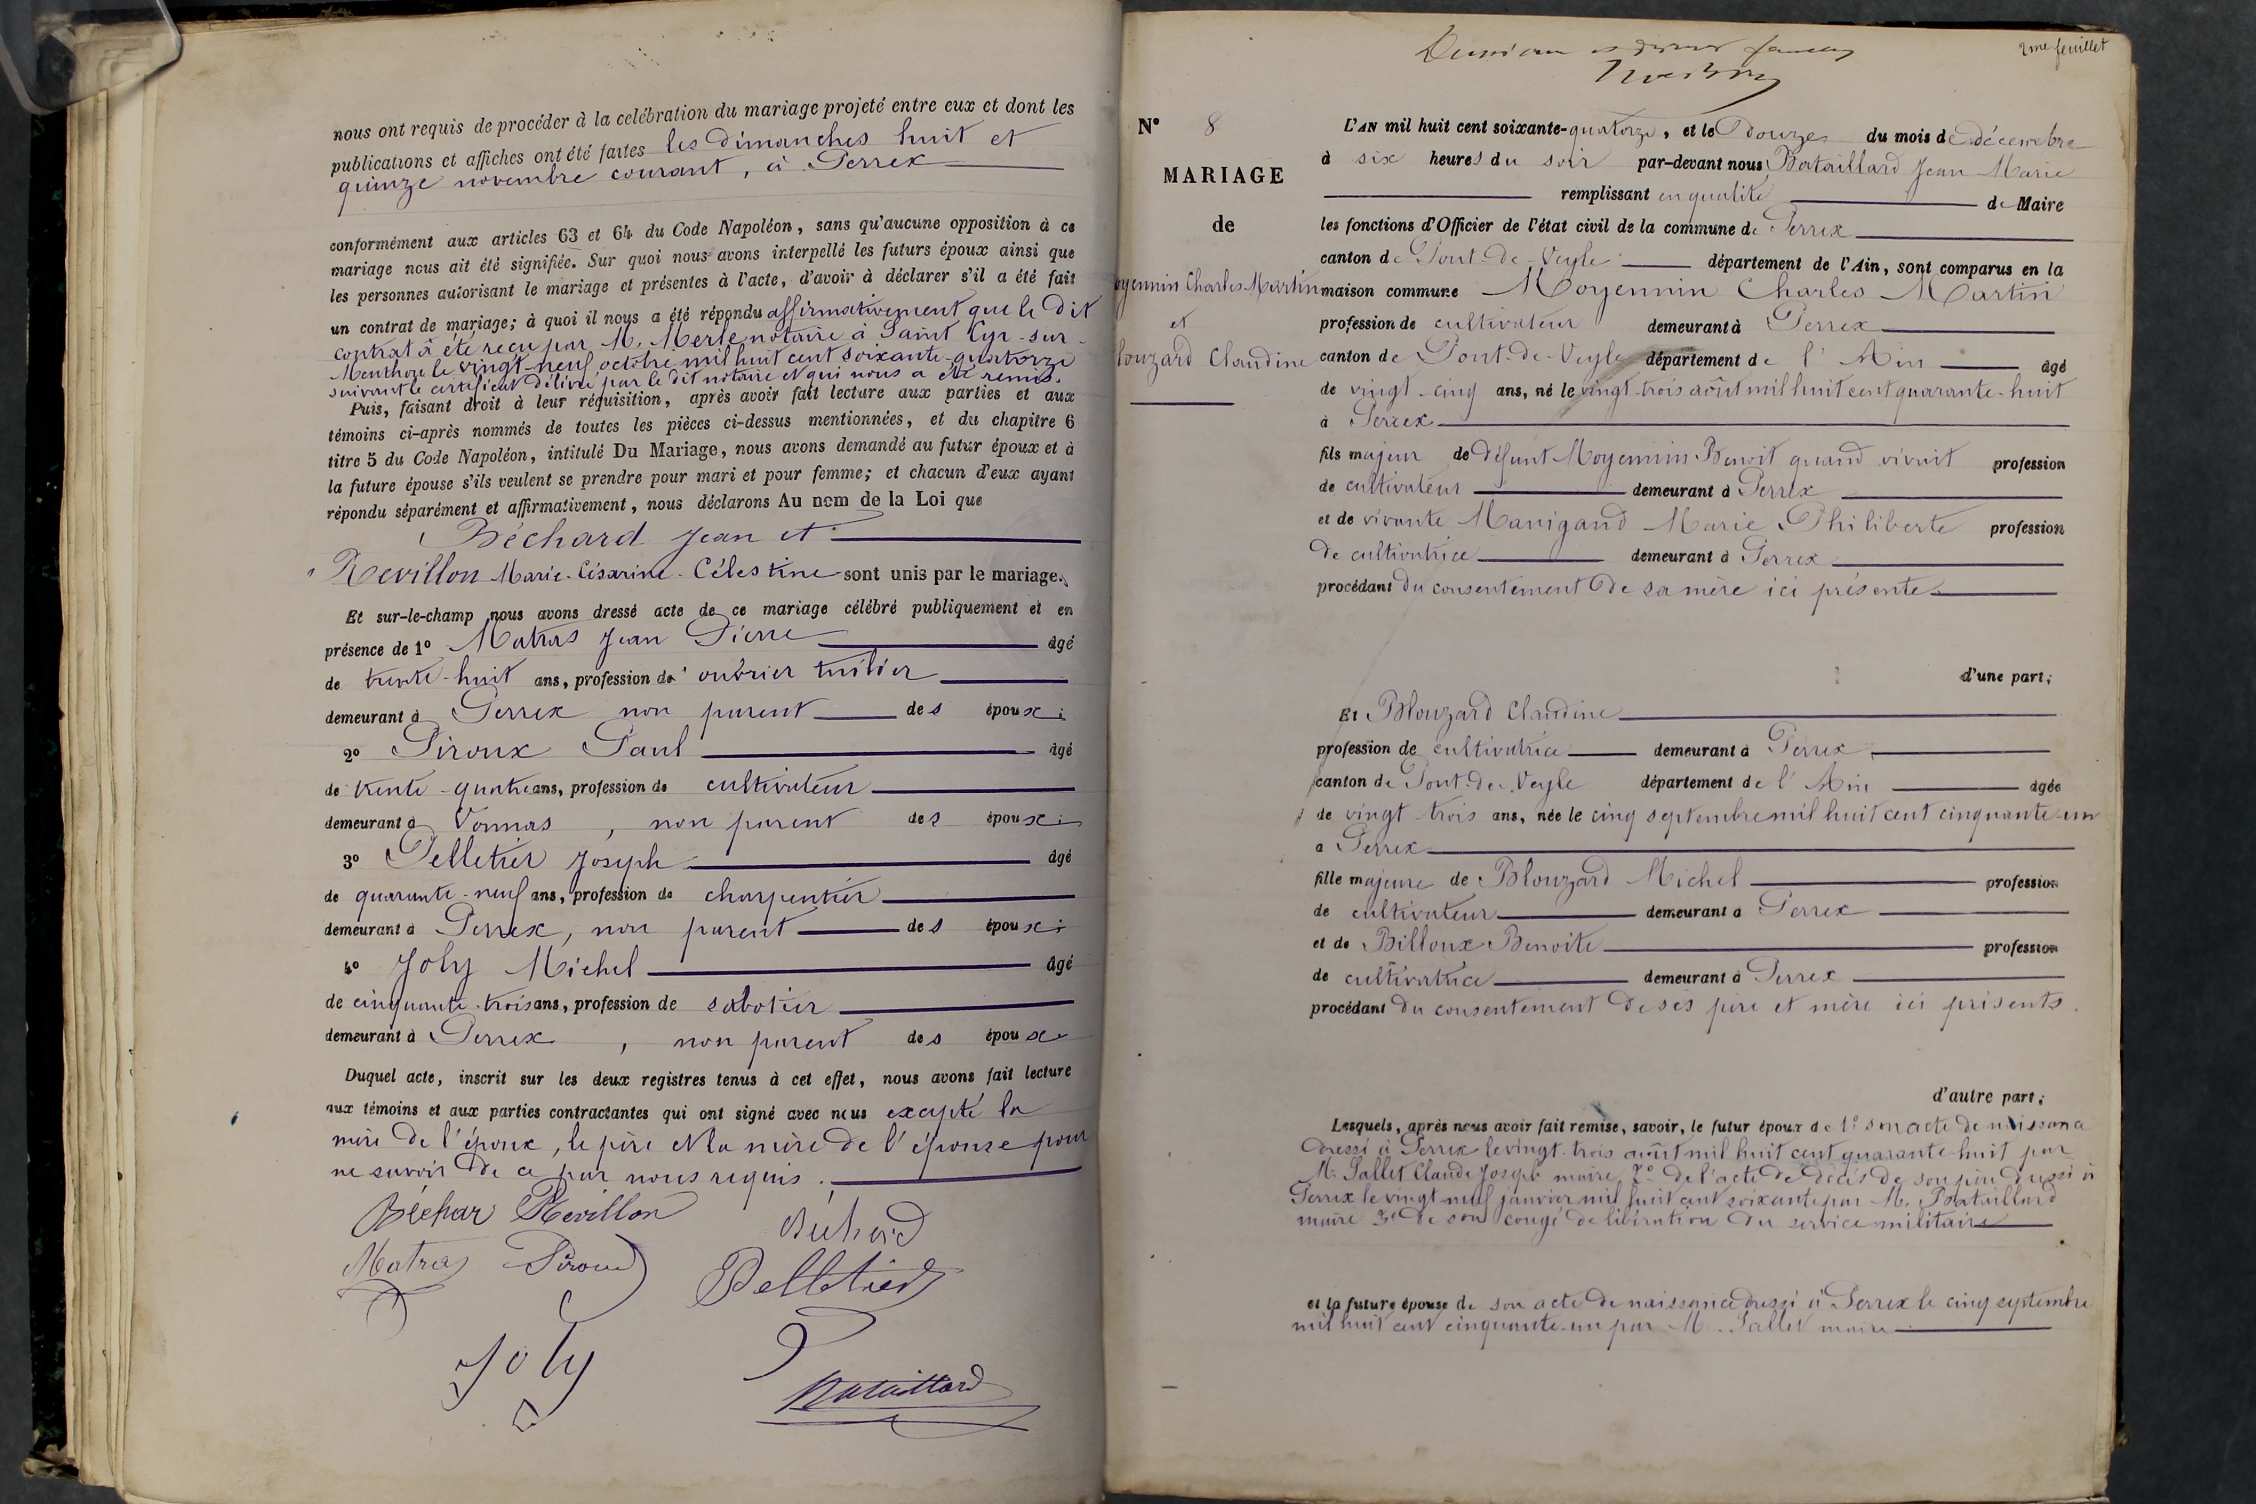 nous ont requis de procéder à la celébration du mariage projeté entre eux et dont les
publications et affiches ont été faites les dimanches huit et
quinze novembre courant, à Perrex
conformément aux articles 63 et 64 du Code Napoléon, sans qu'aucune opposition à ce
mariage nous ait été signifiée. Sur quoi nous avons interpellé les futurs époux ainsi que
les personnes autorisant le mariage et présentes à l'acte, d'avoir à déclarer s'il a été fait
un contrat de mariage; à quoi il nous a été répondu affirmativement que le dit
contrat a été reçu par M. Merle notaire à Saint Cyr-sur-
Menthon le vingt-neuf octobre mil huit cent soixante-quatorze
suivant le certificat délivré par le dit notaire et qui nous a été remis.
Puis, faisant droit à leur réquisition, après avoir fait lecture aux parties et aux
témoins ci-après nommés de toutes les pièces ci-dessus mentionnées, et du chapitre 6
titre 5 du Code Napoléon, intitulé Du Mariage, nous avons demandé au futur époux et à
la future épouse s'ils veulent se prendre pour mari et pour femme; et chacun d'eux ayant
répondu séparément et affirmativement, nous déclarons Au nom de la Loi que
Béchard Jean et
Revillon Marie-Césarine-Célestine sont unis par le mariage.
Et sur-le-champ nous avons dressé acte de ce mariage célébré publiquement et en
présence de 1° Matras Jean Pierre âgé
de trente-huit ans, profession d' ouvrier tuilier
demeurant à Perrex non parent des époux;
2° Piroux Paul âgé
de trente-quatre ans, profession de cultivateur
demeurant à Vonnas, non parent des époux;
3° Pelletier Joseph âgé
de quarante-neuf ans, profession de charpentier
demeurant à Perrex, non parent des époux;
4° Joly Michel âgé
de cinquante-trois ans, profession de sabotier
demeurant à Perrex, non parent des époux
Duquel acte, inscrit sur les deux registres tenus à cet effet, nous avons fait lecture
aux témoins et aux parties contractantes qui ont signé avec nous excepté la
mère de l'époux, le père et la mère de l'épouse pour
ne savoir de ce par nous requis.
Béchar Revillon Béchard
Matras Piroud Pelletier
Joly
Bataillard
2me feuillet
N° 8
MARIAGE
de
oyennin Charles Martin
et
louzard Claudine
L'AN mil huit cent soixante-quatorze, et le Douze du mois de décembre
à six heures du soir par-devant nous Bataillard Jean Marie
remplissant en qualité de Maire
les fonctions d'Officier de l'état civil de la commune de Perrex
canton de Pont-de-Veyle département de l'Ain, sont comparus en la
maison commune Moyennin Charles Martin
profession de cultivateur demeurant à Perrex
canton de Pont-de-Veyle département de l'Ain âgé
de vingt-cinq ans, né le vingt-trois août mil huit cent quarante-huit
à Perrex
fils majeur de défunt Moyennin Benoit quand vivait profession
de cultivateur demeurant à Perrex
et de vivante Manigand Marie Philiberte profession
de cultivatrice demeurant à Perrex
procédant du consentement de sa mère ici présente
d'une part;
Et Blouzard Claudine
profession de cultivatrice demeurant à Perrex
canton de Pont-de-Veyle département de l'Ain âgée
de vingt-trois ans, née le cinq septembre mil huit cent cinquante-un
à Perrex
fille majeure de Blouzard Michel profession
de cultivateur demeurant à Perrex
et de Billoux Benoite profession
de cultivatrice demeurant à Perrex
procédant du consentement de ses père et mère ici présents.
d'autre part;
Lesquels, après nous avoir fait remise, savoir, le futur époux de 1° son acte de naissance
dressé à Perrex le vingt-trois août mil huit cent quarante-huit par
M. Pallet Claude Joseph maire 2° de l'acte de décès de son père dressé à
Perrex le vingt-neuf janvier mil huit cent soixante par M. Bataillard
maire 3° de son congé de libération du service militaire
et la future épouse de son acte de naissance dressé à Perrex le cinq septembre
mil huit cent cinquante-un par M. Pallet maire